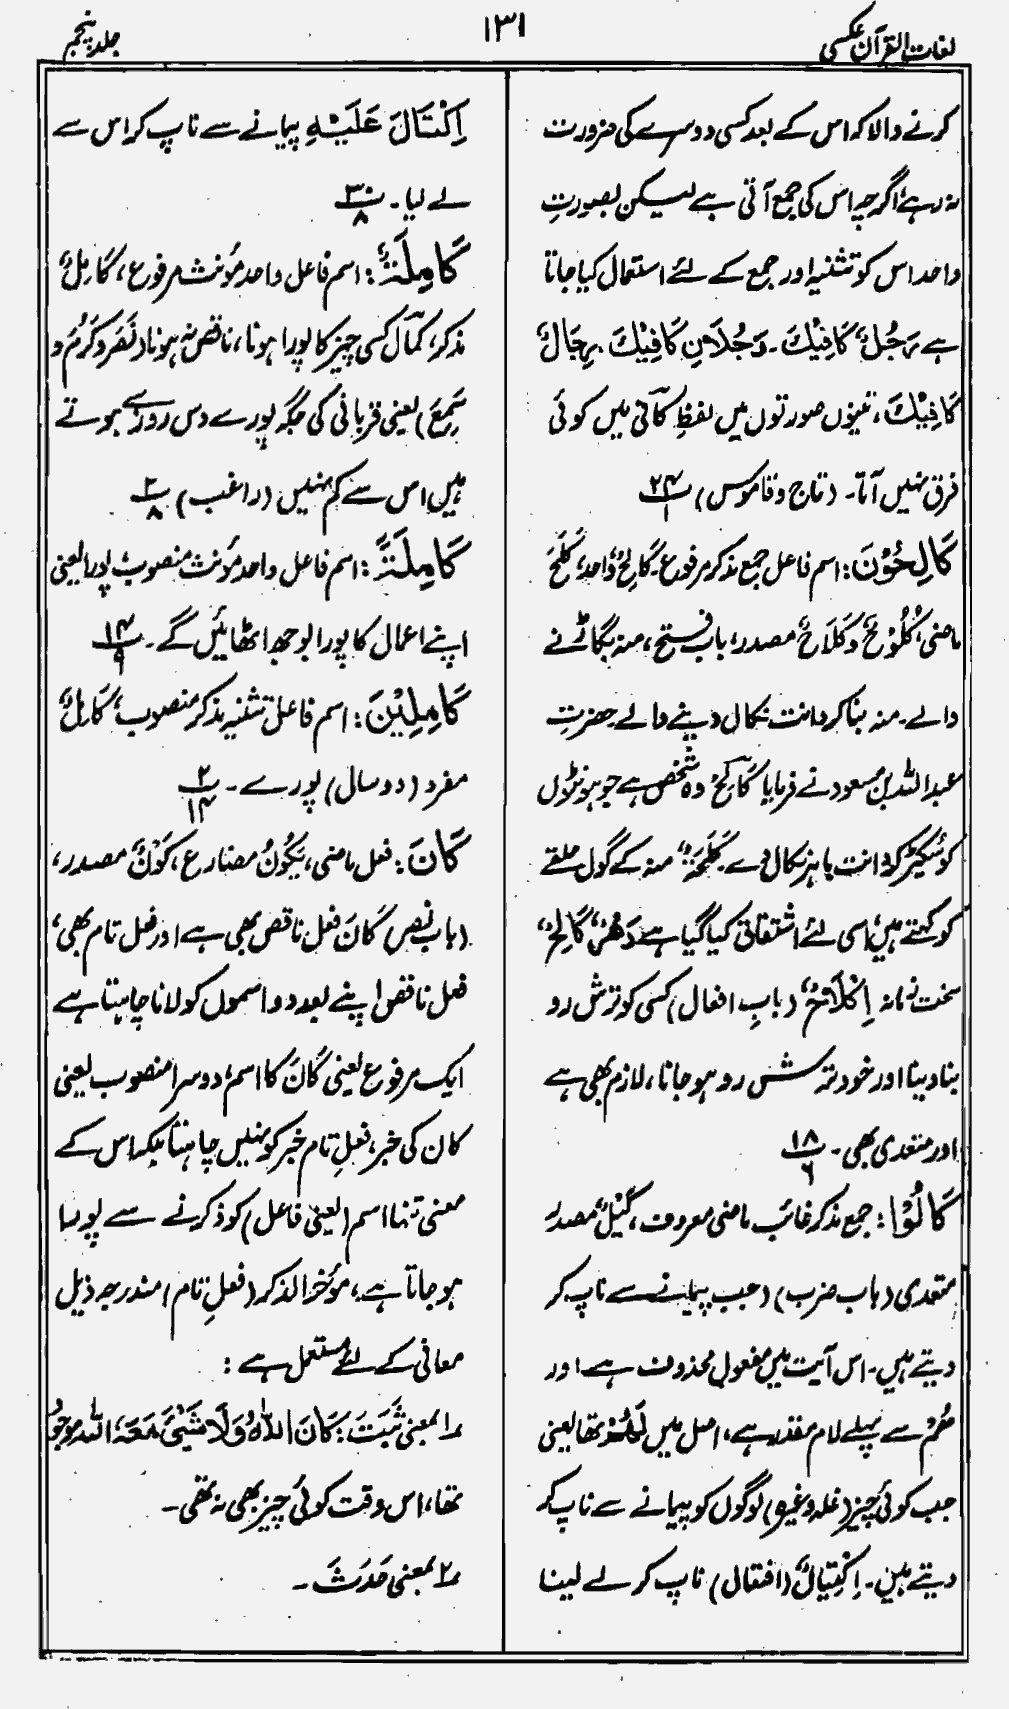 لغات القرآن عکسی
۱۳۱
جلد پنجم
کرنے والا کہ اس کے بعد کسی دوسرے کی ضرورت
نہ رہے، اگرچہ اس کی جمع آتی ہے لیکن بصورتِ
واحد اس کو تثنیہ اور جمع کے لئے استعمال کیا جاتا
ہے رَجُلٌ کَافِیْکَ۔ رَجُلَانِ کَافِیْکَ رِجَالٌ
کَافِیْکَ، تینوں صورتوں میں لفظِ کافی میں کوئی
فرق نہیں آتا۔ (تاج و قاموس) ۲۴/۱
کَالِحُوْنَ: اسم فاعل جمع مذکر مرفوع۔ کَالِحٌ واحد، کَلَحَ
ماضی، کُلُوْحٌ وَکَلَاحٌ مصدر، باب فتح، منہ بگاڑنے
والے۔ منہ بنا کر دانت نکال دینے والے۔ حضرت
عبداللہ بن مسعود نے فرمایا کَالِحٌ وہ شخص ہے جو ہونٹوں
کو سکیڑ کر دانت باہر نکال دے۔ کَلَحَۃٌ منہ کے گول حلقے
کو کہتے ہیں، اسی لئے اشتقاق کیا گیا ہے دَھْرٌ کَالِحٌ
سخت زمانہ اِکْلَاحٌ (بابِ افعال) کسی کو ترش رو
بنا دینا اور خود ترش رو ہو جانا، لازم بھی ہے
اور متعدی بھی۔ ۱۸/۶
کَالُوْا: جمع مذکر غائب ماضی معروف، کَیْلٌ مصدر
متعدی (باب ضرب) (جب پیمانے سے ناپ کر
دیتے ہیں۔ اس آیت میں مفعول محذوف ہے اور
ھُمْ سے پہلے لام مقدر ہے، اصل میں لَھُمْ تھا یعنی
جب کوئی چیز (غلہ وغیرہ) لوگوں کو پیمانے سے ناپ کر
دیتے ہیں۔ اِکْتِیَالٌ (افتعال) ناپ کر لے لینا
اِکْتَالَ عَلَیْہِ پیمانے سے ناپ کر اس سے
لے لیا۔ ۳۰/۸
کَامِلَۃٌ: اسم فاعل واحد مؤنث مرفوع، کَامِلٌ
مذکر، کمال کسی چیز کا پورا ہونا، ناقص نہ ہونا (نَصَرَ وَکَرُمَ وَ
سَمِعَ) یعنی قربانی کی جگہ پورے دس روزے ہوتے
ہیں اس سے کم نہیں (راغب) ۲/۸
کَامِلَۃً: اسم فاعل واحد مؤنث منصوب، پورا یعنی
اپنے اعمال کا پورا بوجھ اٹھائیں گے۔ ۱۴/۹
کَامِلَیْنِ: اسم فاعل تثنیہ مذکر منصوب، کَامِلٌ
مفرد (دو سال) پورے۔ ۲/۱۴
کَانَ: فعل ماضی، یَکُوْنُ مضارع، کَوْنٌ مصدر،
(باب نصر) کَانَ فعل ناقص بھی ہے اور فعل تام بھی،
فعل ناقص اپنے بعد دو اسموں کو لانا چاہتا ہے
ایک مرفوع یعنی کَانَ کا اسم، دوسرا منصوب یعنی
کان کی خبر، فعلِ تام خبر کو نہیں چاہتا بلکہ اس کے
معنی تنہا اسم (یعنی فاعل) کو ذکر نے سے پورا
ہو جاتا ہے، مؤخر الذکر (فعلِ تام) مندرجہ ذیل
معانی کے لئے مستعمل ہے:
۱ بمعنی ثَبَتَ: کَانَ اللّٰہُ وَلَا شَیْئَ مَعَہٗ، اللہ موجود
تھا، اس وقت کوئی چیز بھی نہ تھی۔
۲ بمعنی حَدَثَ۔